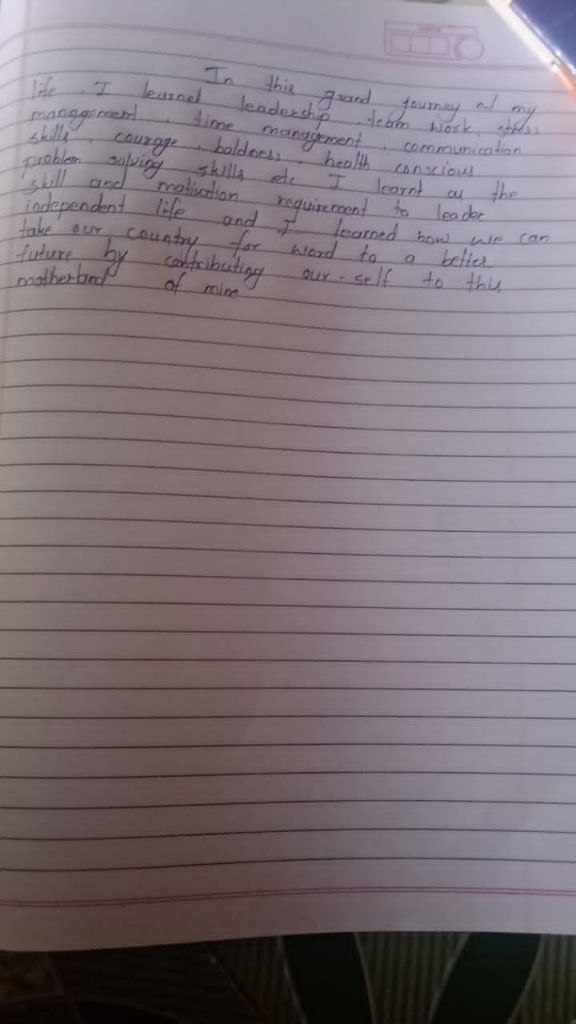 In this grand journey of my
life. I learned leadership, team work, stress
management, time management, communication
skills, courage, boldness, health conscious
problem solving skills etc I learnt all the
skill and motivation requirement to leader
independent life and I learned how we can
take our country for word to a better
future by contributing our-self to this
motherland of mine